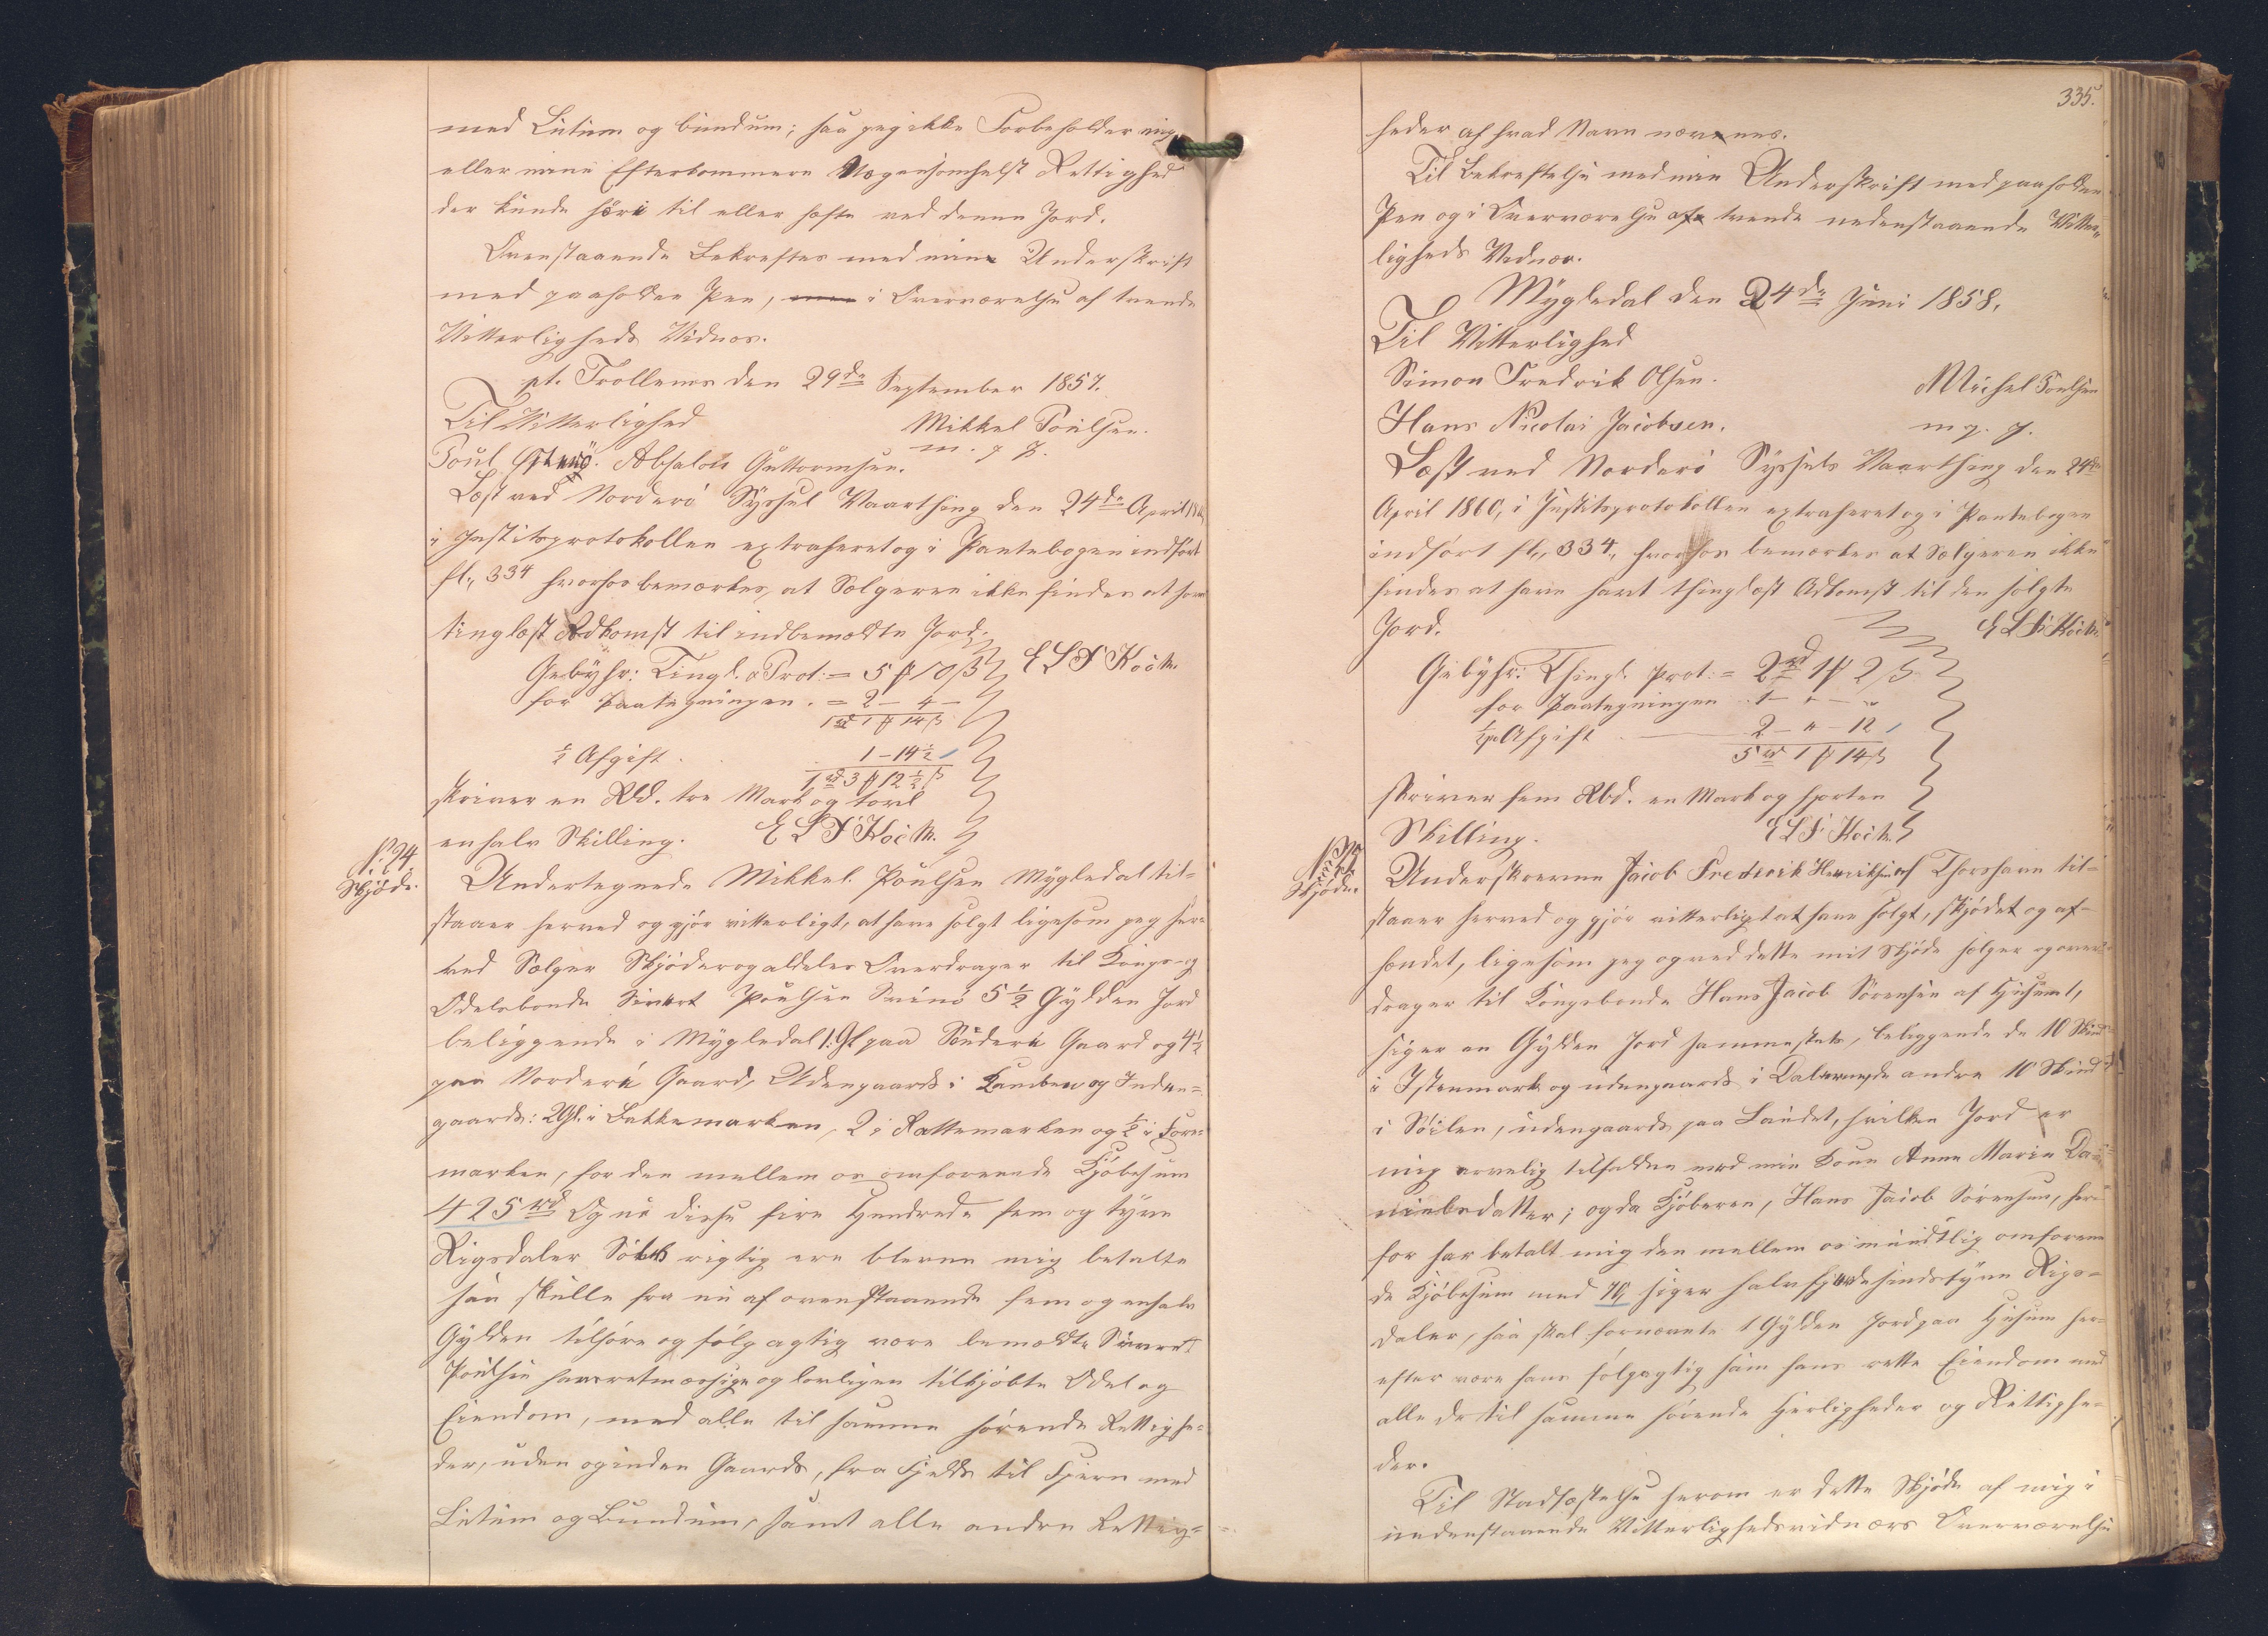 med Lutum og bundum; saa jeg ikke Forbeholder mig
eller mine Efterkommere Nogensomhelst Rettighed
der kunde høre til eller hæfte ved denne Jord.
Ovenstaaende Bekræftes med min Underskrift
med paaholden Pen, i Overværelse af tvende
Vitterligheds Vidner.
pt. Trollenæs den 29de September 1857.
Til Vitterlighed
Mikkel Poulsen.
m. p. P.
Poul Absalon Guttormsen.
Læst ved Norderø Syssel Vaarthing den 24de April
i Justitsprotokollen extraheret og i Pantebogen indført
fl: 334 hvorhos bemærkes, at Sælgeren ikke findes at have
tinglæst Adkomst til indbemældte Jord.
E L F Koch.
Gebyhr: Tingl. & Prot: = 5 ℳ 10 ß
for Paategningen. = 2 – 4 –
1 rd 1 ℳ 14 ß
½ Afgift . 1 – 14½
1 rd 3 ℳ 12½ ß
skriver en Rbd. tre Mark og tovl
en halv Skilling. E L F Koch.
N: 24.
Skjøde.
Undertegnede Mikkel Poulsen Mygledal til-
staaer herved og gjør vitterligt, at have solgt ligesom jeg her-
ved Sælger Skjøder og aldeles Overdrager til Konge- og
Odelsbonde Sivert Poulsen Svinø 5½ Gylden Jord
beliggende i Mygledal 1: Gl paa Sønderi Gaard og 4½
paa Norderi Gaard, Udengaards i og Inden-
gaards: 2 Gl. i Bakkemarken, 2 i Rattemarken og ½ i
marken, for den mellem os omforenede Kjøbesum
425 rd Og nu disse fire Hundrede fem og tyve
Rigsdaler Sølv rigtig ere blevne mig betalte
saa skulle fra nu af ovenstaaende fem og en halv
Gylden tilhøre og følgagtig være bemældte Sivert
Poulsen hans retmæssige og lovligen tilkjøbte Odel og
Eiendom, med alle til samme hørende Rettighe-
der, uden og inden Gaards, fra Fjelds til Fjern med
Lutum og Bundum, samt alle andre Rettig-
335.
heder af hvad Navn nævnes.
Til Bekræftelse med min Underskrift med paaholden
Pen og i Overværelse af tvende nedenstaaende Vitter-
ligheds Vidner.
Mygledal den 24de Juni 1858.
Til Vitterlighed
Simon Fredrik Olsen.
Michel Poulsen
Hans Nicolai Jacobsen.
m. p. P.
Læst ved Norderø Syssels Vaarthing den 24de
April 1860, i Justitsprotokollen extraheret og i Pantebogen
indført fl. 334, hvorhos bemærkes at Sælgeren ikke
findes at have havt thinglæst Adkomst til den solgte
Jord.
E L F Koch.
Gebyhr: Thingl. Prot: = 2 rd 1 ℳ 2 ß
for Paategningen 1 – " – "
½ pc Afgift 2 – " – 12
5 rd 1 ℳ 14 ß
skriver fem Rbd. en Mark og fjorten
Skilling. E L F Koch.
N: 25
Skjøde.
Underskrevne Jacob Fredrik Henriksen af Thorshavn til-
staaer herved og gjør vitterligt at have solgt, skjødet og af-
hændet, ligesom jeg og ved dette mit Skjøde sælger og over-
drager til Kongsbonde Hans Jacob Sørensen af Husum 1,
siger en Gylden Jord sammesteds, beliggende de 10 Skind
i og udengaards i de andre 10 Skind
i Søilen, udengaards paa Landet, hvilken Jord er
mig arvelig tilfalden med min Kone Anna Maria Da-
nielsdatter; og da Kjøberen, Hans Jacob Sørensen, her-
for har betalt mig den mellem os mundtlig omforene-
de Kjøbesum med 70, siger halvfjerdesindstyve Rigs-
daler, saa skal fornævnte 1 Gylden Jord paa Husum her-
efter være hans følgagtig som hans rette Eiendom med
alle de til samme hørende Herligheder og Rettighe-
der.
Til Stadfæstelse herom er dette Skjøde af mig i
nedenstaaende Vitterlighedsvidners Overværelse